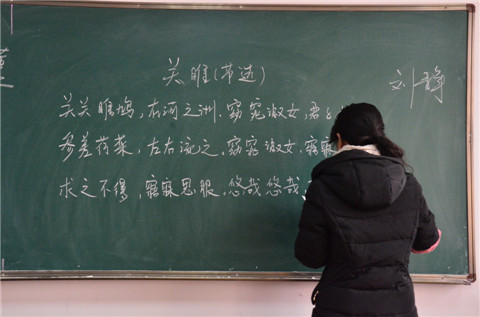 关雎(节选)
刘静
关关雎鸠,在河之洲.窈窕淑女,君子
参差荇菜,左右流之.窈窕淑女.寤寐
求之不得,寤寐思服.悠哉悠哉,